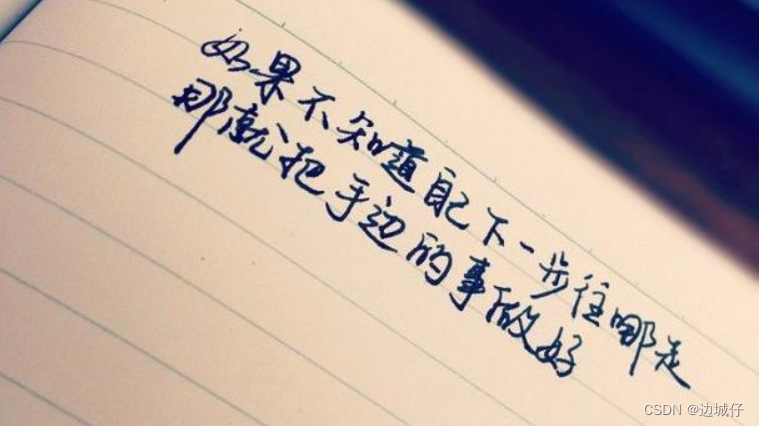 如果不知道自己下一步往哪走
那就把手边的事做好
CSDN @边城仔